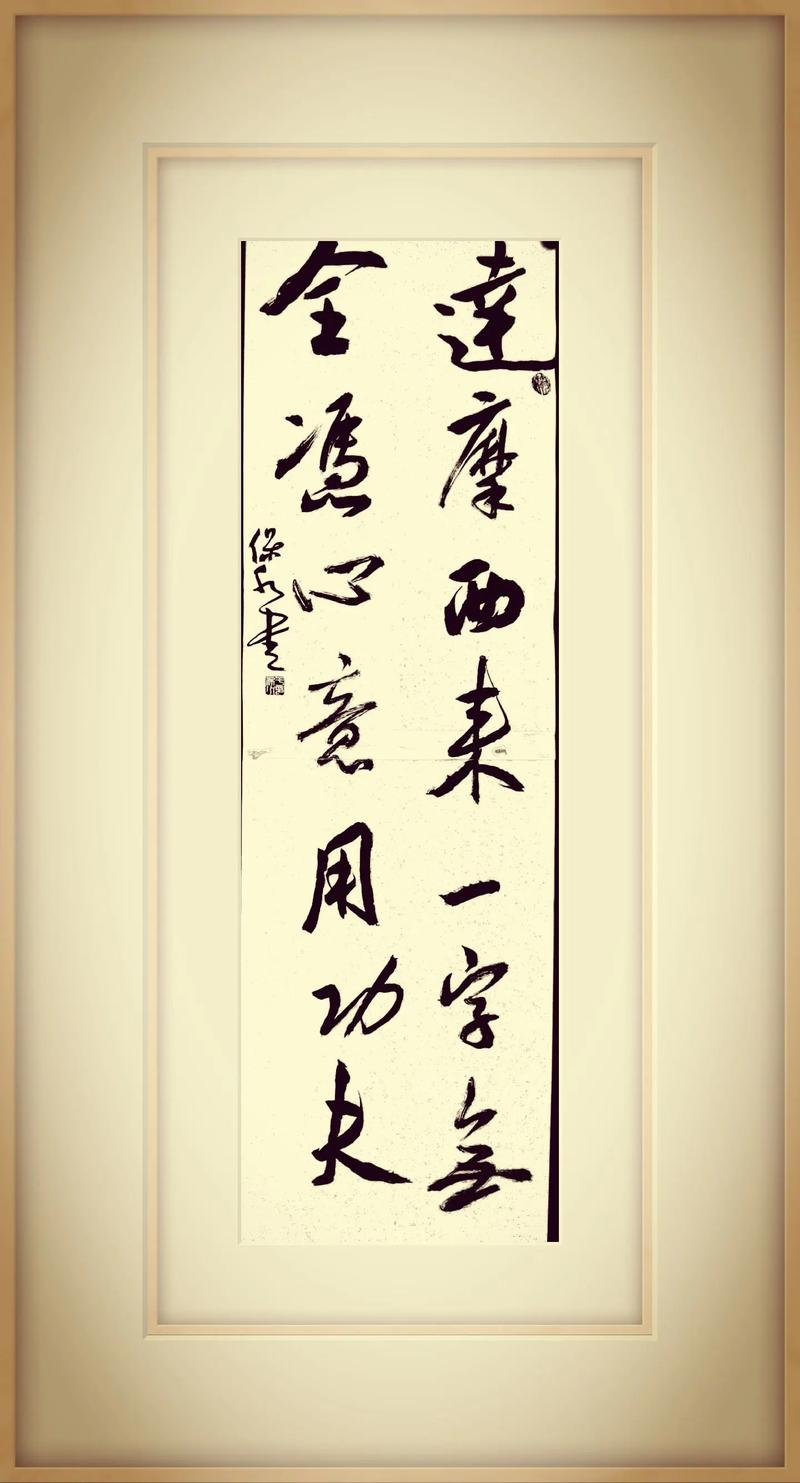 達摩西来一字無
全憑心意用功夫
保永書